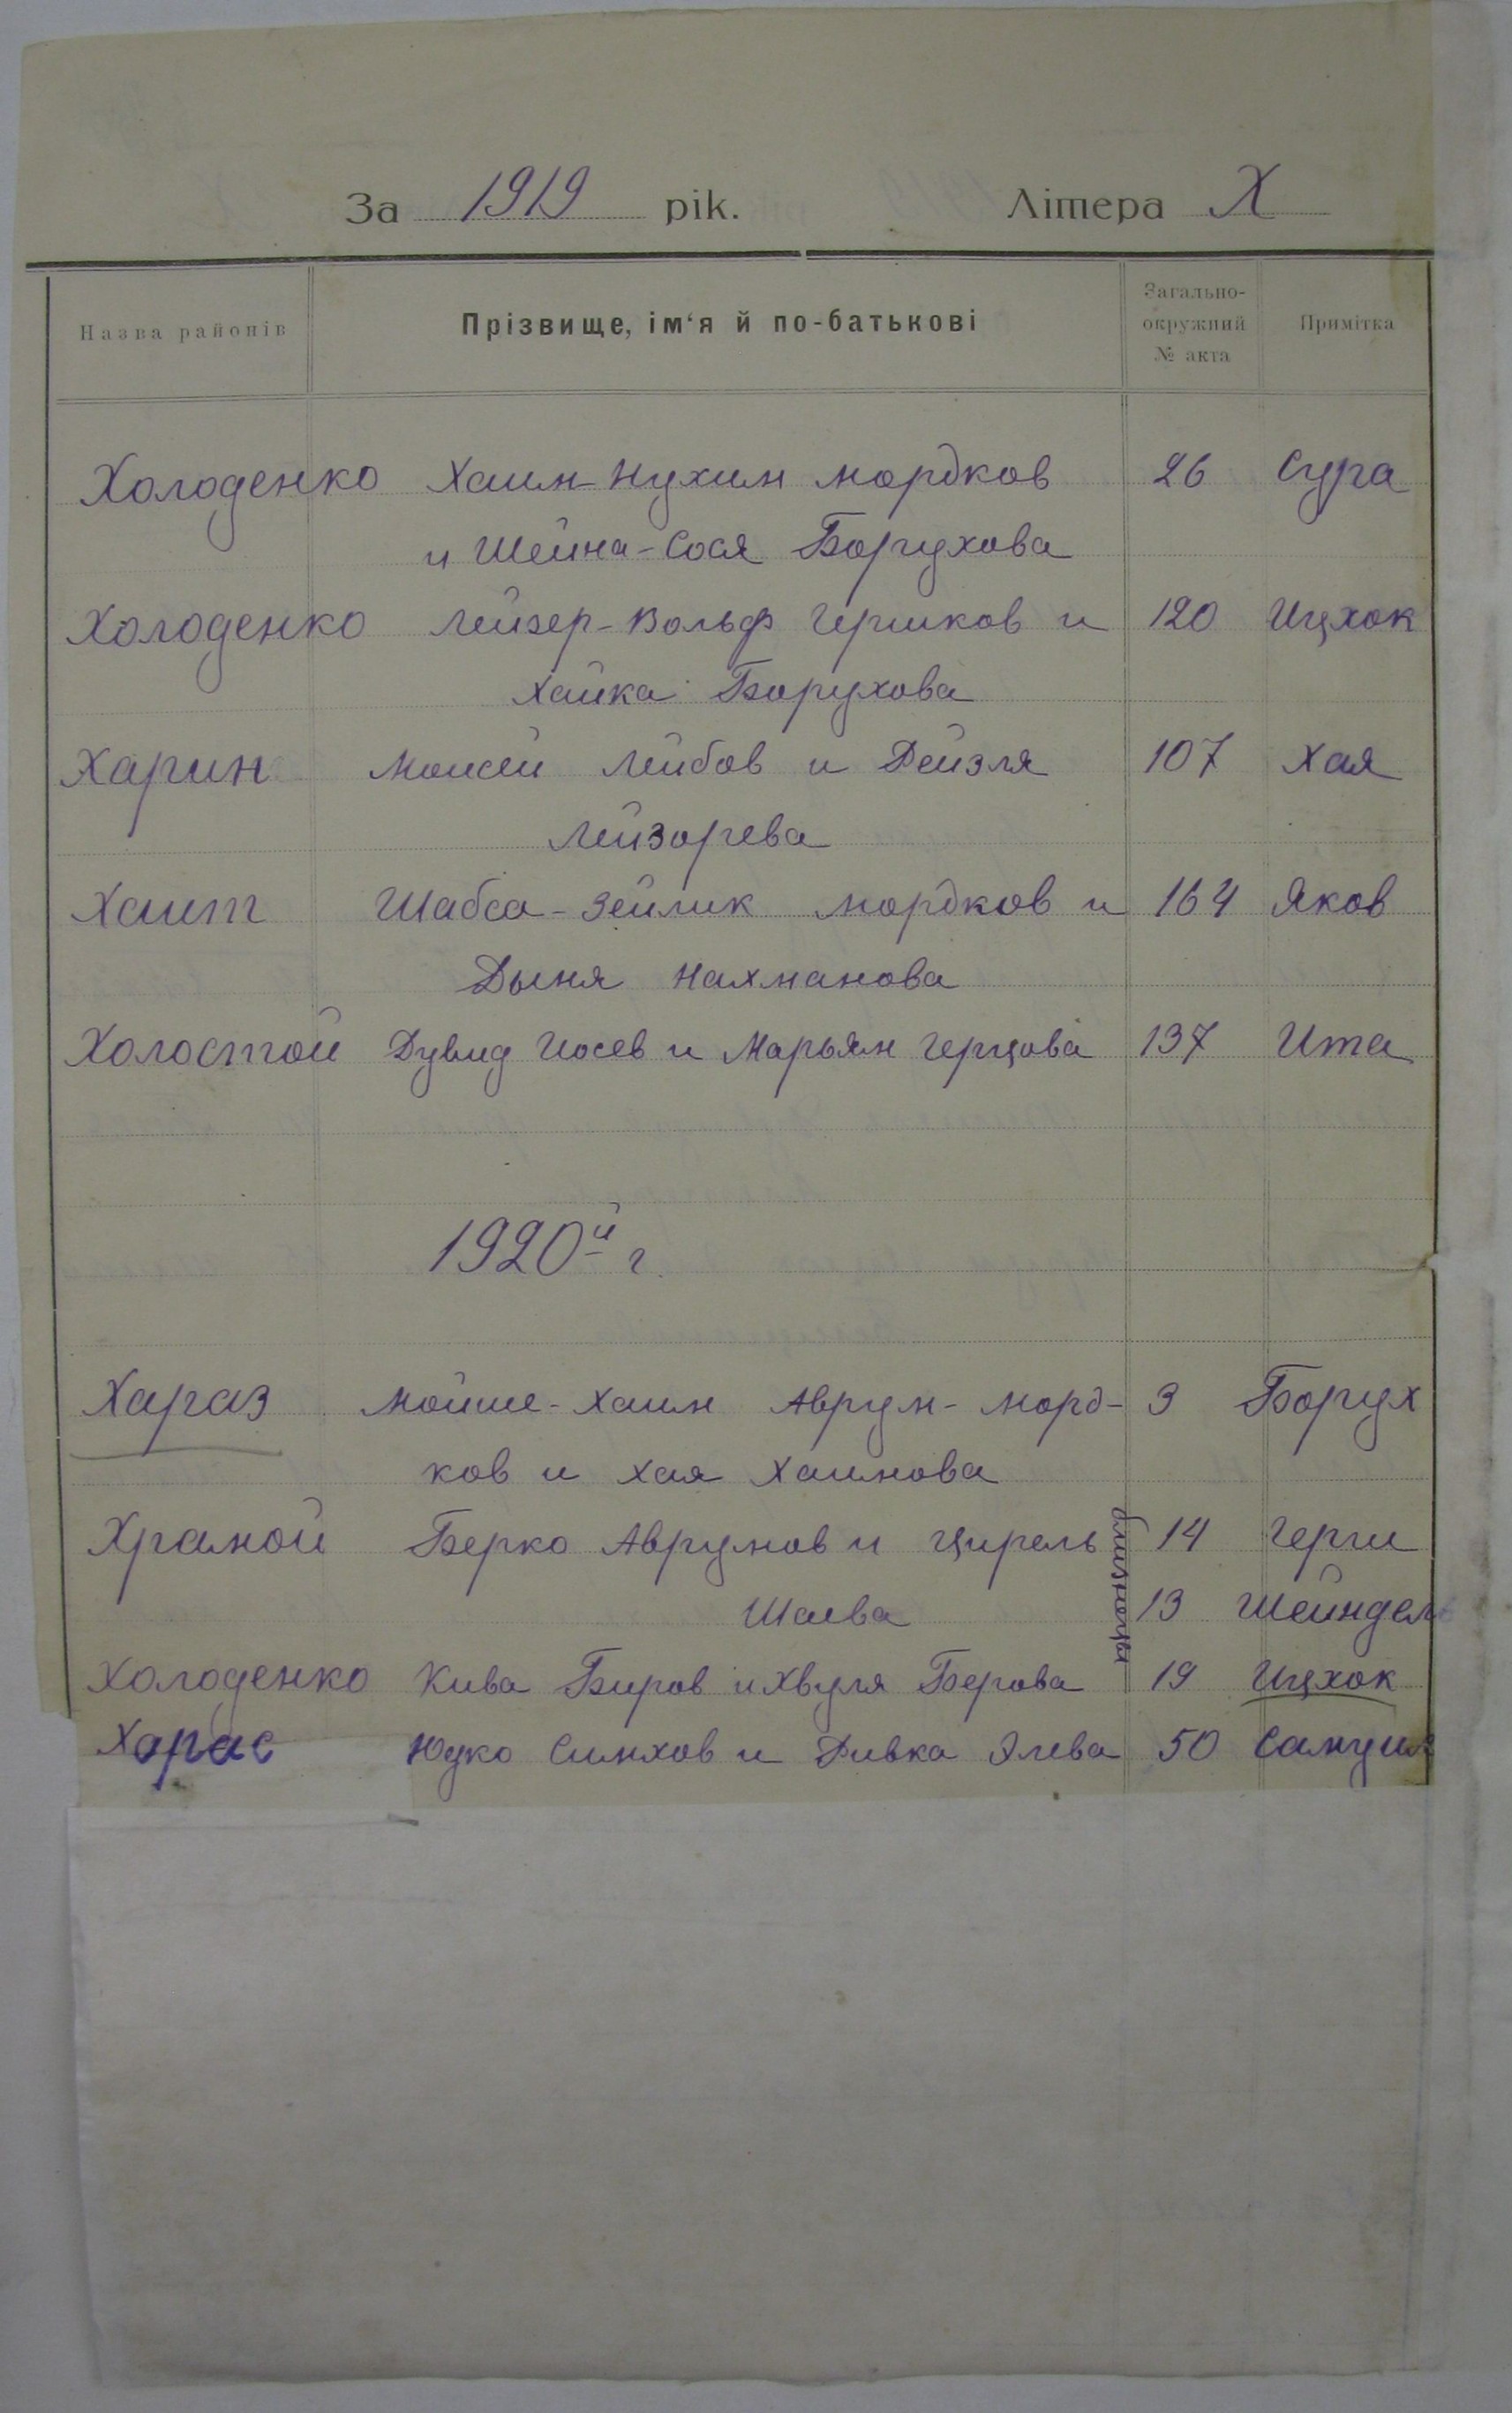 За 1919 рік. Літера Х
Назва районів Прізвище, ім‘я й по-батькові Загально-окружний № акта Примітка
Холоденко Хаим-Нухим Мордков 26 Сура
и Шейна-Сося Борухова
Холоденко Лейзер-Вольф Гершков и 120 Ицхок
Хайка Борухова
Харин Моисей Лейбов и Дейзля 107 Хая
Лейзорева
Хаит Шабса-Зейлик Мордков и 164 Яков
Дыня Нахманова
Холостой Дувид Иосев и Марьям Герцова 137 Ита
1920й г.
Хараз Мойше-Хаим Аврум-Морд- 3 Борух
ков и Хая Хаимова
Храмой Берко Аврумов и Цирель 14 Герш
Шаева 13 Шейндель
близнецы
Холоденко Кива Биров и Хвуля Берова 19 Ицхок
Харас Юдко Симхов и Ривка Элева 50 Самуил